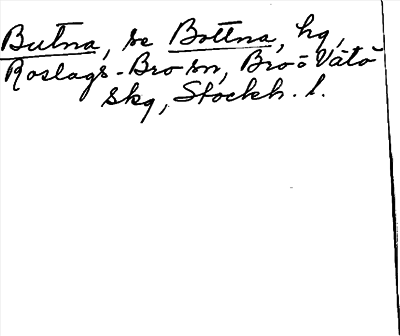 Butna, se Bottna, hg,
Roslags-Bro sn, Bro o Vätö
skg, Stockh. l.